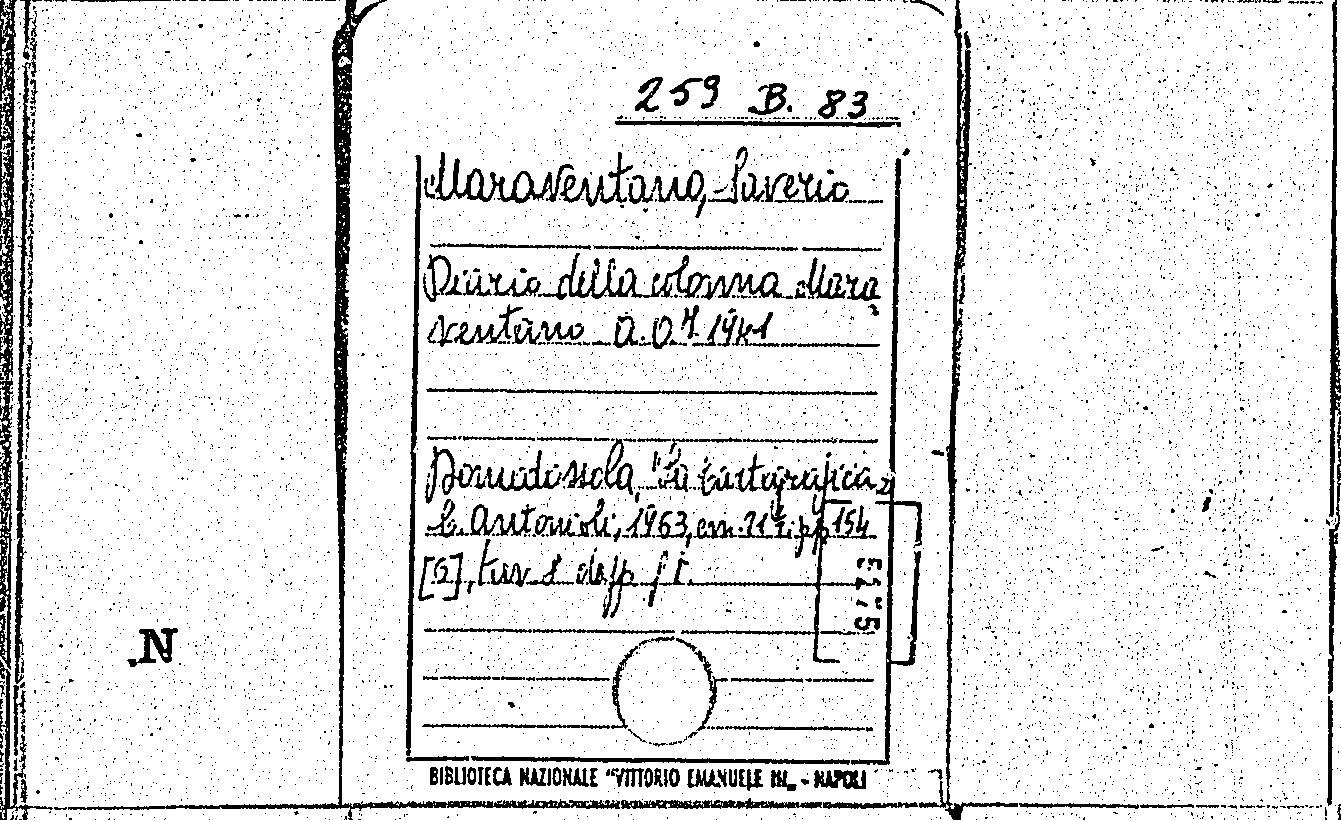 259 B. 83
Maraventano, Saverio
Diario della colonna Mara
ventano A.O.I. 1941
Domodossola, "La Cartografica"
C. Antonioli, 1963, cm. 21, pp 154
[6], tav. 8 dopp f. t.
.N
BIBLIOTECA NAZIONALE "VITTORIO EMANUELE III„ - NAPOLI